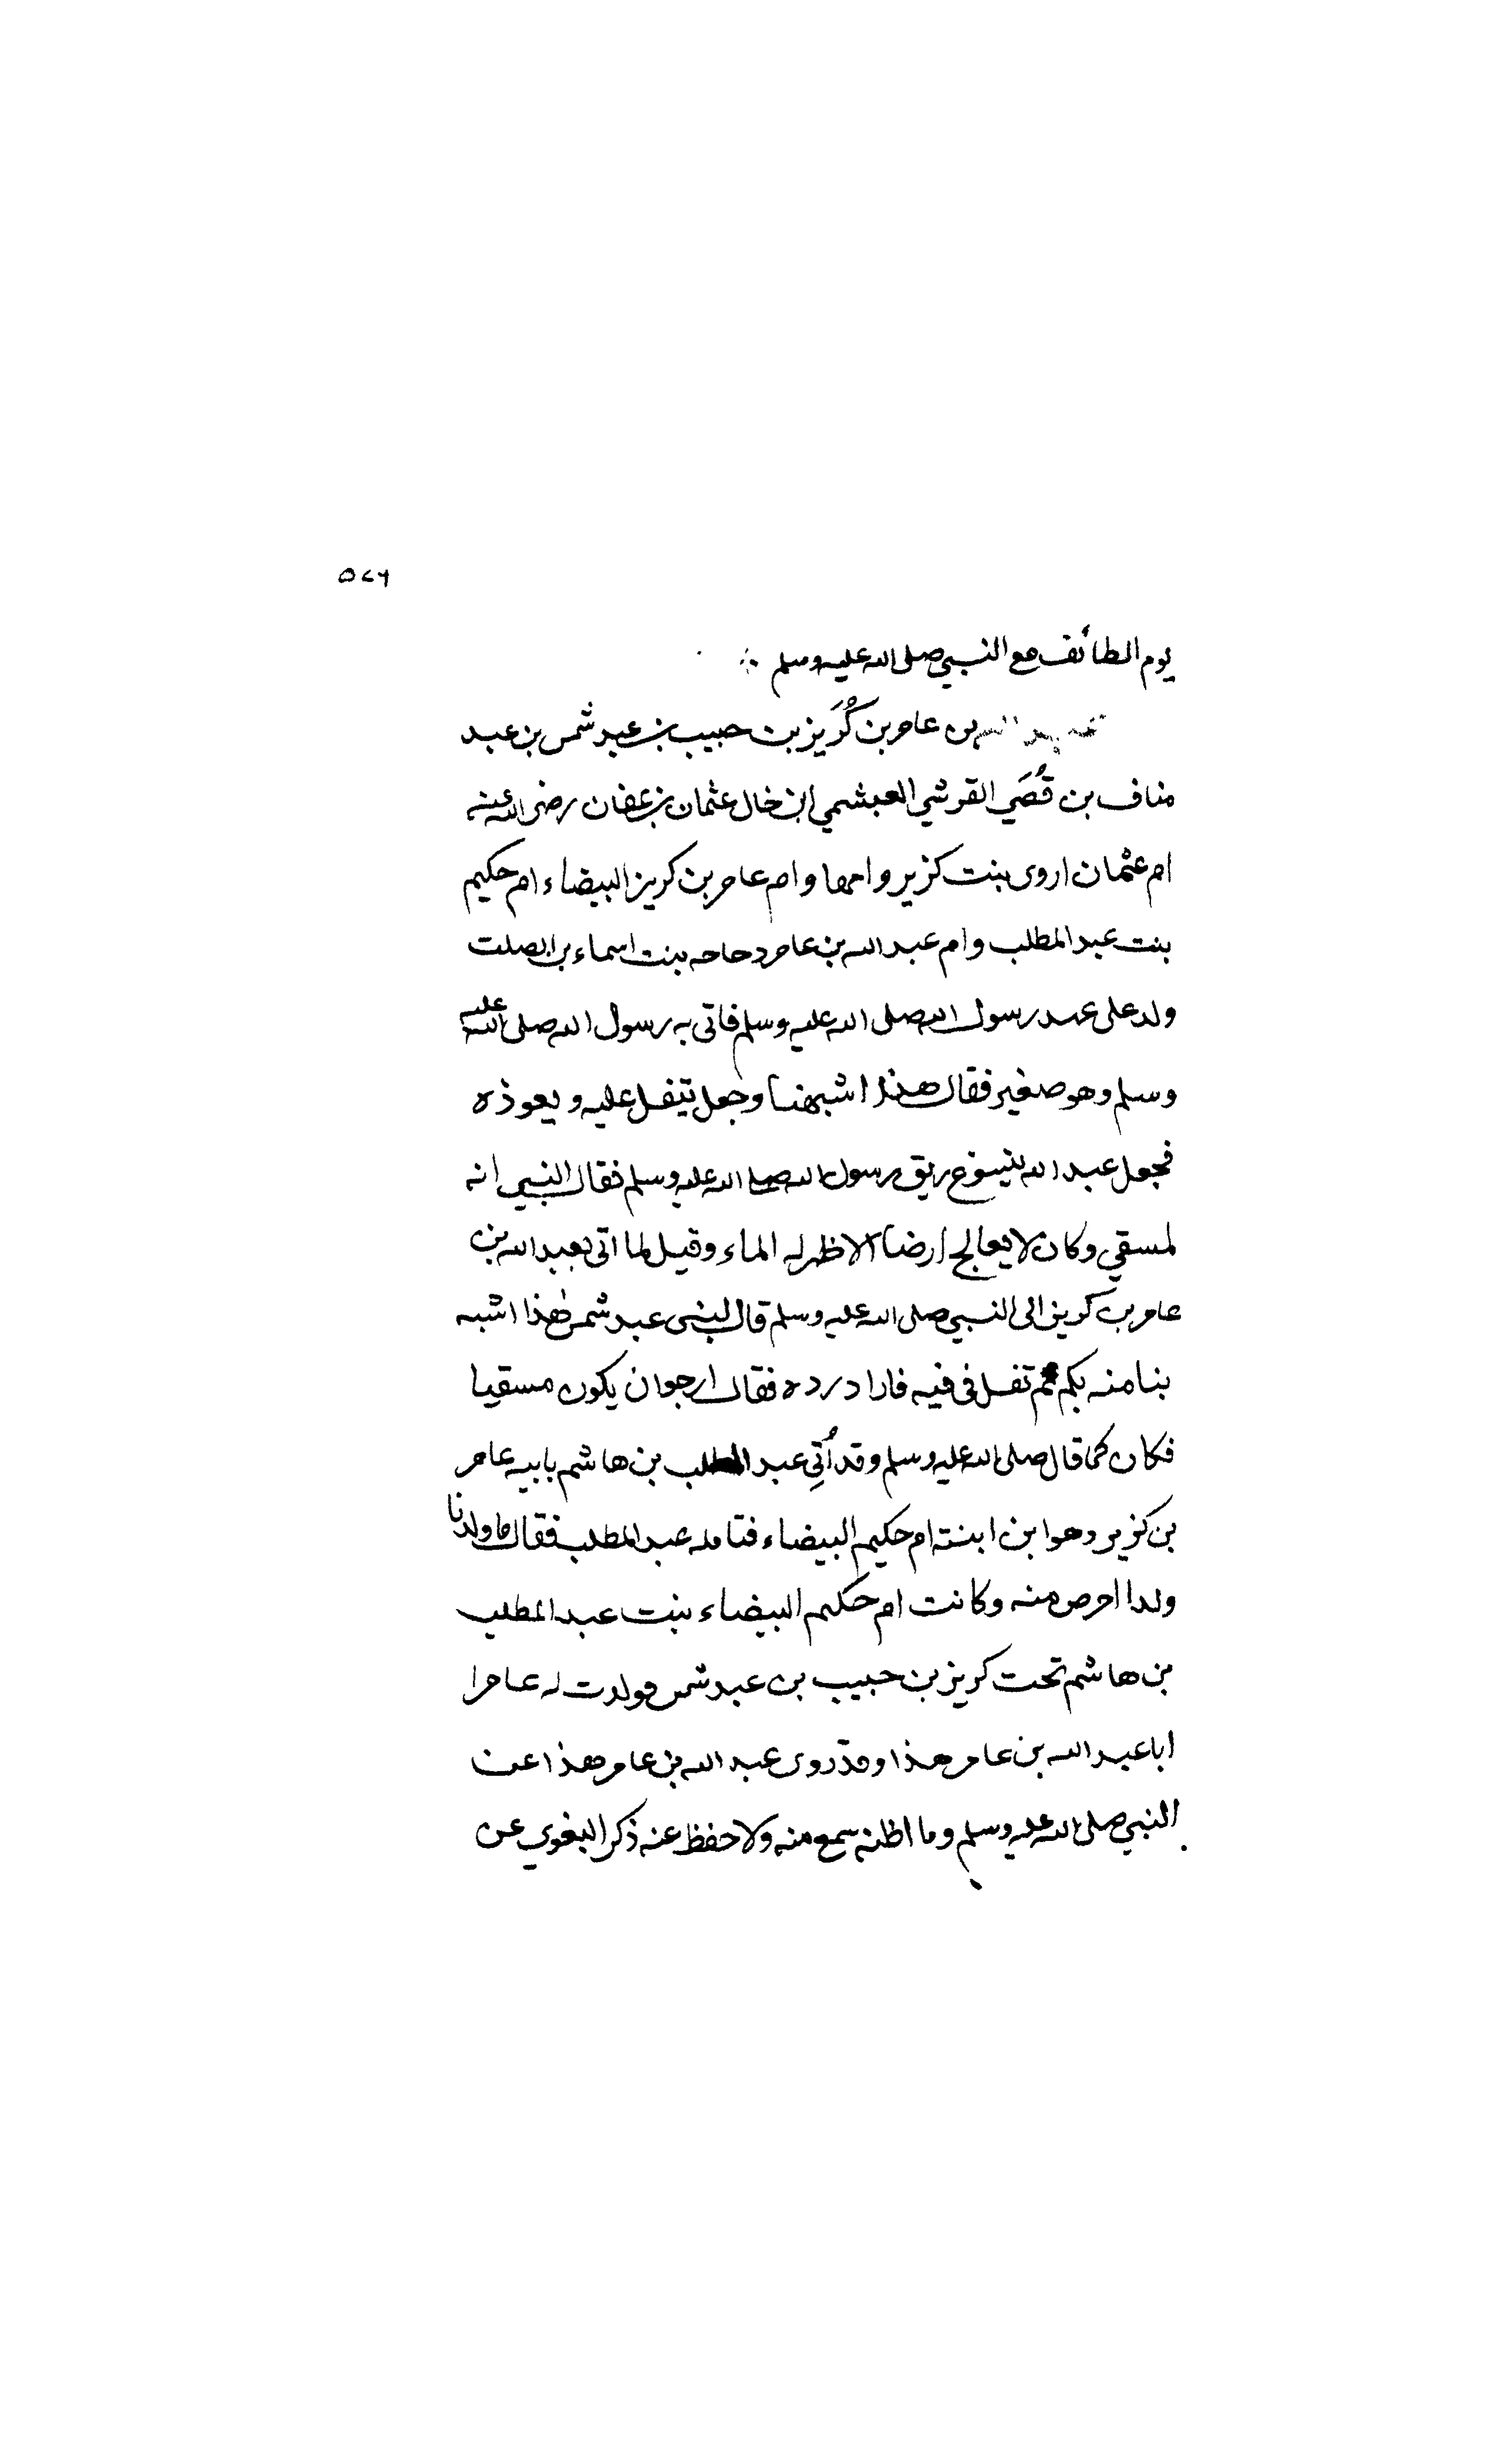 ٥٧٦
يوم الطائف مع النبي صلى الله عليه وسلم
عبد الله بن عامر بن كُرَيز بن حبيب بن عبد شمس بن عبد
مناف بن قُصَي القرشي العبشمي ابن خال عثمان بن عفان رضى الله عنه
ام عثمان اروى بنت كزير وامها وام عامر بن كريز البيضاء ام حكيم
بنت عبد المطلب وام عبد الله بن عامر دحاحه بنت اسماء بن الصلت
ولد على عهد رسول الله صلى الله عليه وسلم فاتى به رسول الله صلى الله عليه
وسلم وهو صغير فقال هذا اشبهنا وجعل يتفل عليه ويعوذه
فجعل عبد الله يتسوغ ريق رسول الله صلى الله عليه وسلم فقال النبي انه
لمسقي وكان لا يعالج ارضا الا ظهر له الماء وقيل لما اتى بعبد الله بن
عامر بن كريز الى النبي صلى الله عليه وسلم قال لبنى عبد شمس هذا اشبه
بنا منه بكم ثم تفل فى فيه فازدرده فقال ارجو ان يكون مسقيا
فكان كما قال صلى الله عليه وسلم وقد أُتِي عبد المطلب بن هاشم بابيه عامر
بن كزير وهو ابن ابنته ام حكيم البيضاء فتامله عبد المطلب فقال ما ولدنا
ولدا احرص منه وكانت ام حكيم البيضاء بنت عبد المطلب
بن هاشم تحت كريز بن حبيب بن عبد شمس فولدت له عامرا
ابا عبد الله بن عامر هذا وقد روى عبد الله بن عامر هذا عن
النبي صلى الله عليه وسلم وما اظنه سمع منه ولا حفظ عنه ذكر البغوي عن